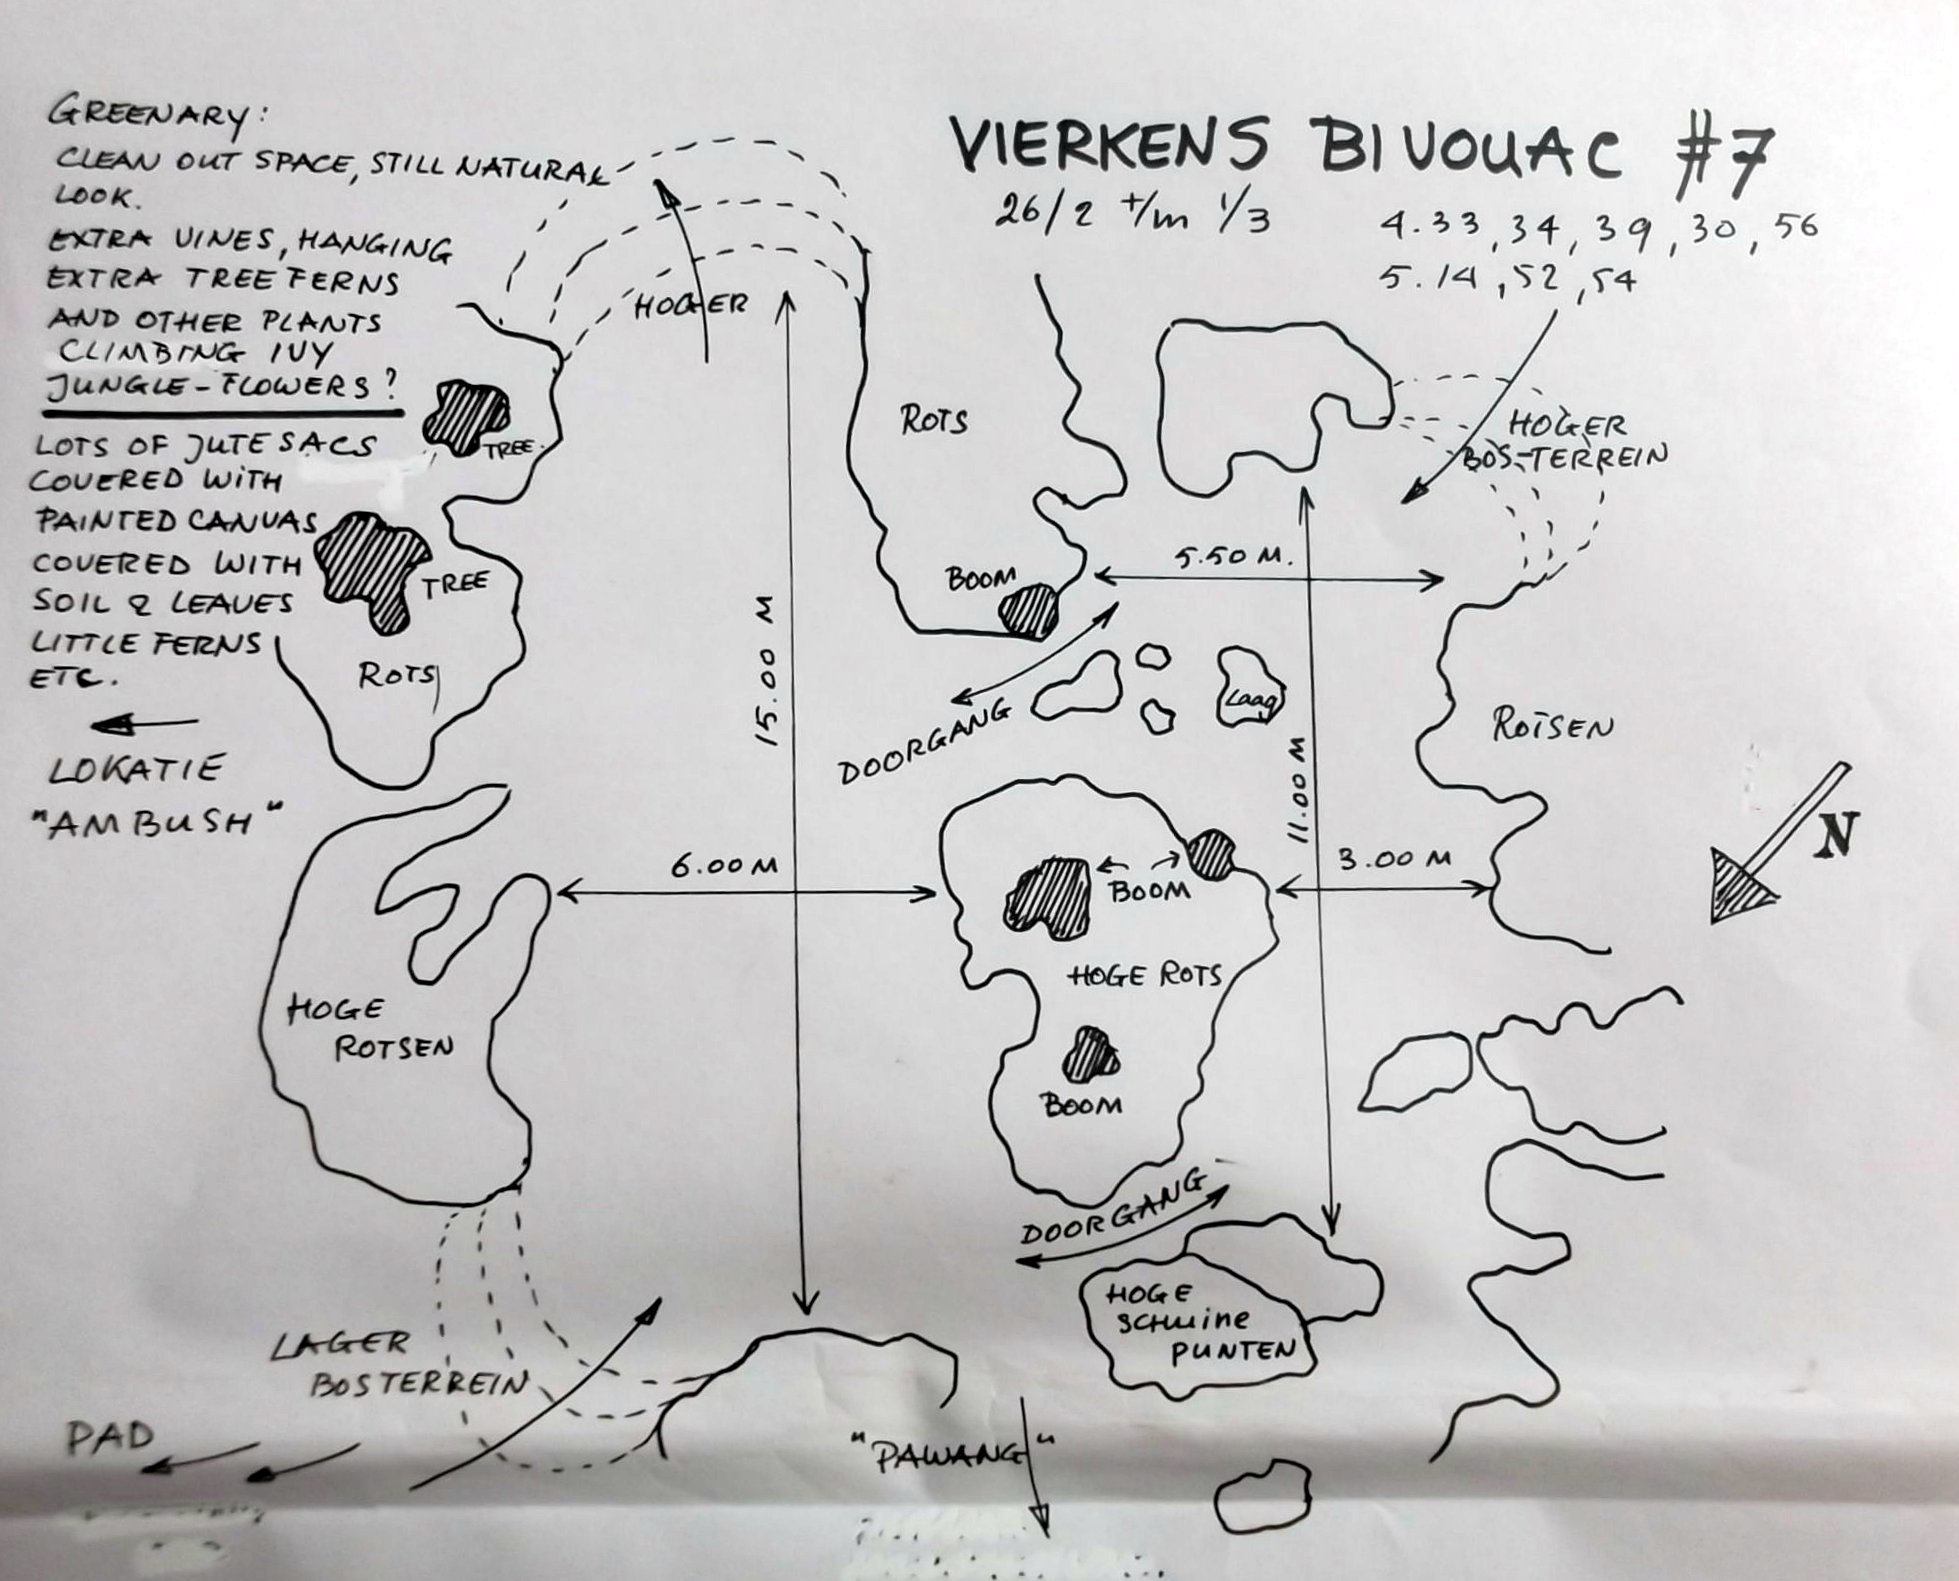 VIERKENS BIVOUAC #7
26/2 t/m 1/3
4.33, 34, 39, 30, 56
5.14, 52, 54
GREENARY:
CLEAN OUT SPACE, STILL NATURAL
LOOK.
EXTRA VINES, HANGING
EXTRA TREE FERNS
AND OTHER PLANTS
CLIMBING IVY
JUNGLE-FLOWERS?
LOTS OF JUTE SACS
COVERED WITH
PAINTED CANVAS
COVERED WITH
SOIL & LEAVES
LITTLE FERNS
ETC.
LOKATIE
"AMBUSH"
HOGER
TREE
TREE
ROTS
ROTS
BOOM
HOGER
BOS-TERREIN
5.50 M.
15.00 M
DOORGANG
Laag
ROTSEN
11.00 M
N
6.00 M
3.00 M
BOOM
HOGE ROTS
BOOM
HOGE
ROTSEN
DOORGANG
HOGE
SCHUINE
PUNTEN
LAGER
BOSTERREIN
PAD
"PAWANG"